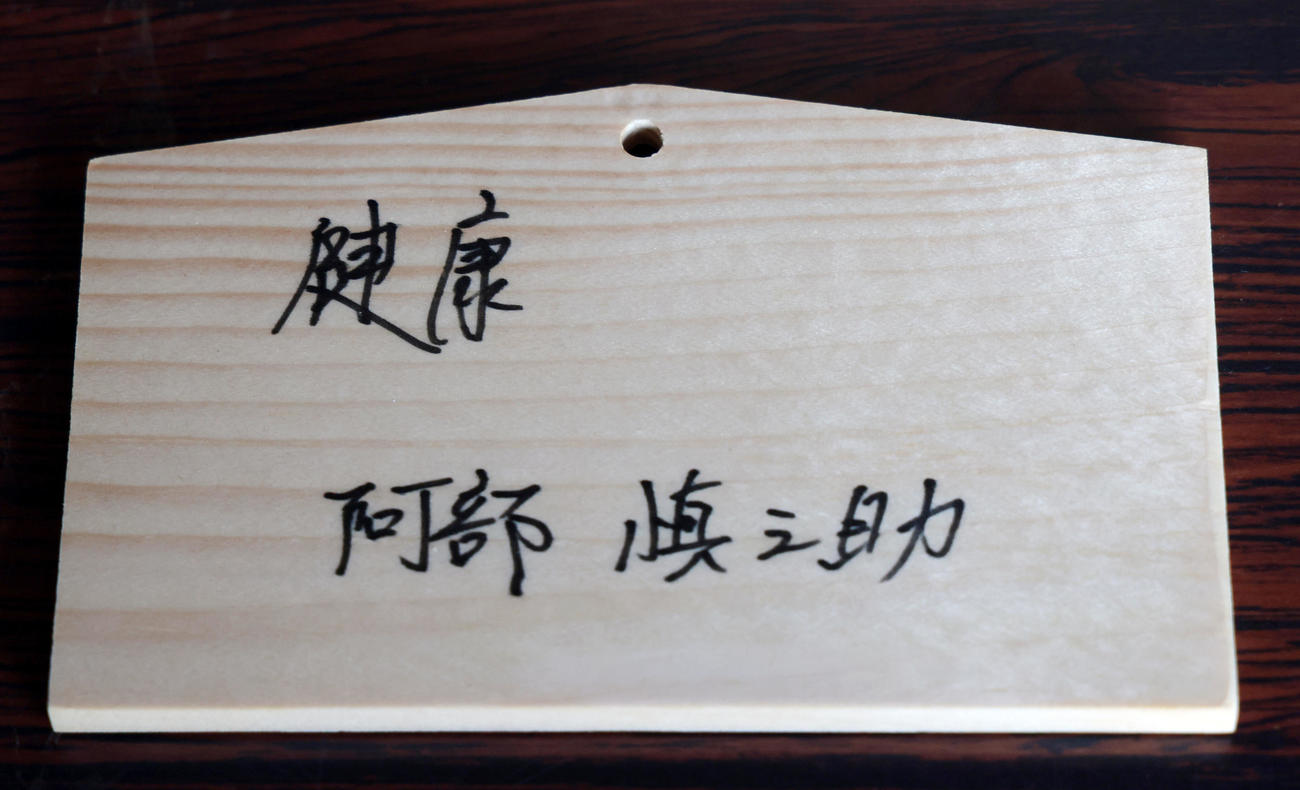 健康
阿部 慎之助